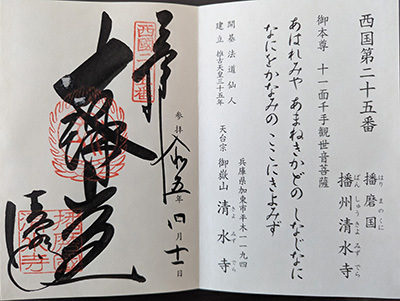 西国第二十五番
播磨国
はりまのくに
播州清水寺
ばんしゅうきよみずでら
御本尊 十一面千手観世音菩薩
あはれみや あまねきかどの しなじなに
なにをかなみの ここにきよみず
開基 法道仙人
建立 推古天皇三十五年
兵庫県加東市平木一一九四
天台宗 御嶽山 清水寺
きよみずでら
奉拝
西國二十五番
参拝 令和五年四月十一日
大講堂
清水寺